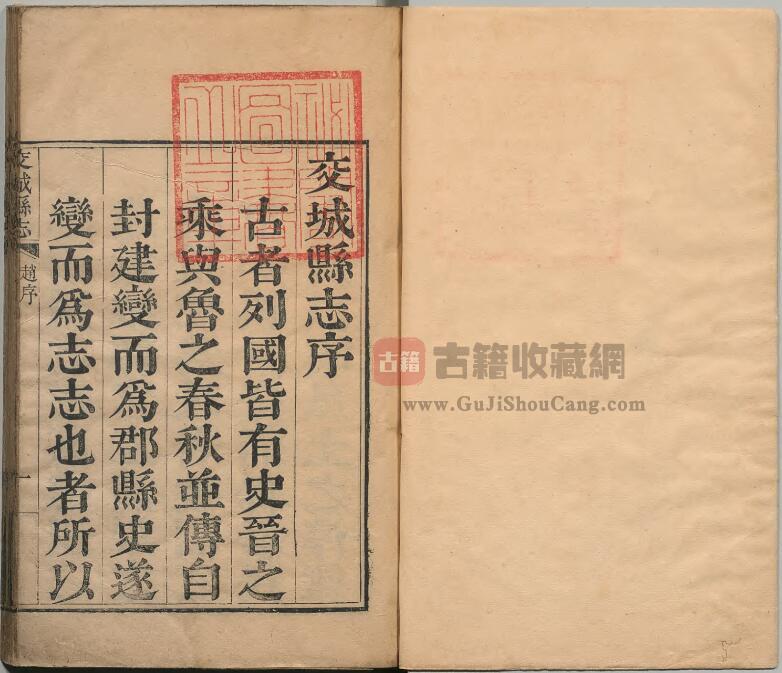 交城縣志序
古者列國皆有史晉之
乘與魯之春秋並傳自
封建變而爲郡縣史遂
變而爲志志也者所以
交城縣志
趙序
一
古籍
古籍收藏網
www.GuJiShouCang.com